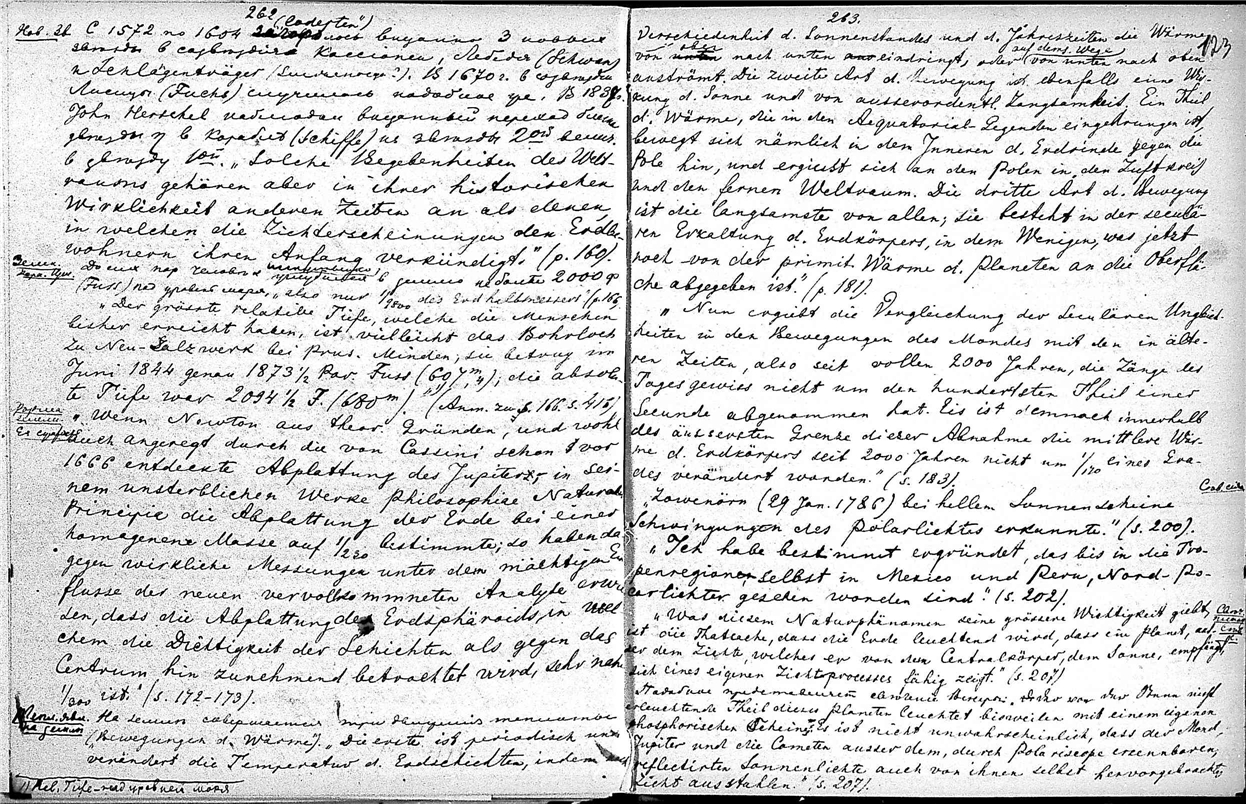 262
(Cadesten")
С 1572 по 1604 видимо 3 новых
звезды в созвездиях Кассиопеи, Лебедя (Schwan)
и Schlangenträger В 1670 г. в созвездии
Лисицы (Fuchs) случилось подобное же. В 1837 г.
John Herschel наблюдал переход
звезды η в Корабле (Schiffe) из звезды 2ой велич.
в звезду 1ой. „Solche Begebenheiten des Welt-
raums gehören aber in ihrer historischen
Wirklichkeit anderen Zeiten an als denen
in welchen die Lichterscheinungen den Erdbe-
wohnern ihren Anfang verkündigt" (p. 160).
До сих пор человек в землю не более 2000 ф
(Fuss) под уровень моря, „also nur 1/9800 des Erdhalbmessers" (p. 166
„Der grösste relative Tiefe, welche die Menschen
bisher erreicht haben, ist vielleicht das Bohrloch
zu Neu-Salzwerk bei Prus. Minden; sie betrug im
Juni 1844 genau 1873 1/2 Par. Fuss (607m,4); die absolu-
te Tiefe war 2094 1/2 F. (680m)." (Anm. zu S. 166. s. 416)
„Wenn Newton aus theor. Gründen, und wohl
auch angeregt durch die von Cassini schon vor
1666 entdeckte Abplattung des Jupiters, in sei-
nem unsterblichen Werke Philosophiae Naturalis
Principia die Abplattung der Erde bei einer
homogenene Masse auf 1/230 bestimmte; so haben da-
gegen wirkliche Messungen unter dem mächtigen Ein-
flusse der neuen vervollkommneten Analyse erwie-
sen, dass die Abplattung des Erdsphäroids, in wel-
chem die Dichtigkeit der Schichten als gegen das
Centrum hin zunehmend betrachtet wird, sehr nahe
1/300 ist." (s. 172-173).
На земле совершается три движения теплоты
(Bewegungen d. Wärme). „Die erste ist periodisch und
verändert die Temperatur d. Erdschichten, indem nach
Rel. Tiefe - под уровнем моря
263.
123
Verschiedenheit d. Sonnenstandes und d. Jahreszeiten die Wärme
von oben nach unten eindringt, oder auf dems. Wege von unten nach oben
ausströmt. Die zweite Art d. Bewegung ist ebenfalls eine Wir-
kung d. Sonne und von ausserordentl. Langsamkeit. Ein Theil
d. Wärme, die in den Aequatorial-Gegenden eingedrungen ist
bewegt sich nämlich in dem Inneren d. Erdrinde gegen die
Pole hin, und ergiesst sich an den Polen in den Luftkreis
und den fernen Weltraum. Die dritte Art d. Bewegung
ist die langsamste von allen; sie besteht in der seculä-
ren Erkaltung d. Erdkörpers, in dem Wenigen, was jetzt
noch von der primit. Wärme d. Planeten an die Oberflä-
che abgegeben ist." (p. 181).
„Nun ergibt die Vergleichung der Seculären Ungleich-
heiten in den Bewegungen des Mondes mit den in älte-
ren Zeiten, also seit vollen 2000 Jahren, die Länge des
Tages gewiss nicht um den hundertsten Theil einer
Secunde abgenommen hat. Es ist demnach innerhalb
des äussersten Grenze dieser Abnahme die mittlere Wär-
me d. Erdkörpers seit 2000 Jahren nicht um 1/170 eines Gra-
des verändert worden." (s. 183)
„Lowenörn (29 Jan. 1786) bei hellem Sonnenscheine
Schwingungen des Polarlichtes erkannte." (s. 200).
„Ich habe bestimmt ergründet, das bis in die Tro-
penregionen, selbst in Mexico und Peru, Nord-Po-
larlichter gesehen worden sind" (s. 202).
„Was diesem Naturphänomen seine grössere Wichtigkeit giebt,
ist die Thatsache, dass die Erde leuchtend wird, dass ein Planet, aus-
ser dem Lichte, welches er von dem Centralkörper, dem Sonne, empfängt,
sich eines eigenen Lichtprocesses fähig zeigt." (s. 207)
Подобное представляет явление Венеры. Der von der Sonne nicht
erleuchtende Theil dieses Planeten leuchtet bisweilen mit einem eigenen
phosphorischen Scheine. Es ist nicht unwahrscheinlich, dass der Mond,
Jupiter und die Cometen ausser dem, durch Polariscope erkennbaren,
reflectirten Sonnenlichte auch von ihnen selbst hervorgebrachtes
Licht ausstrahlen." (s. 207).